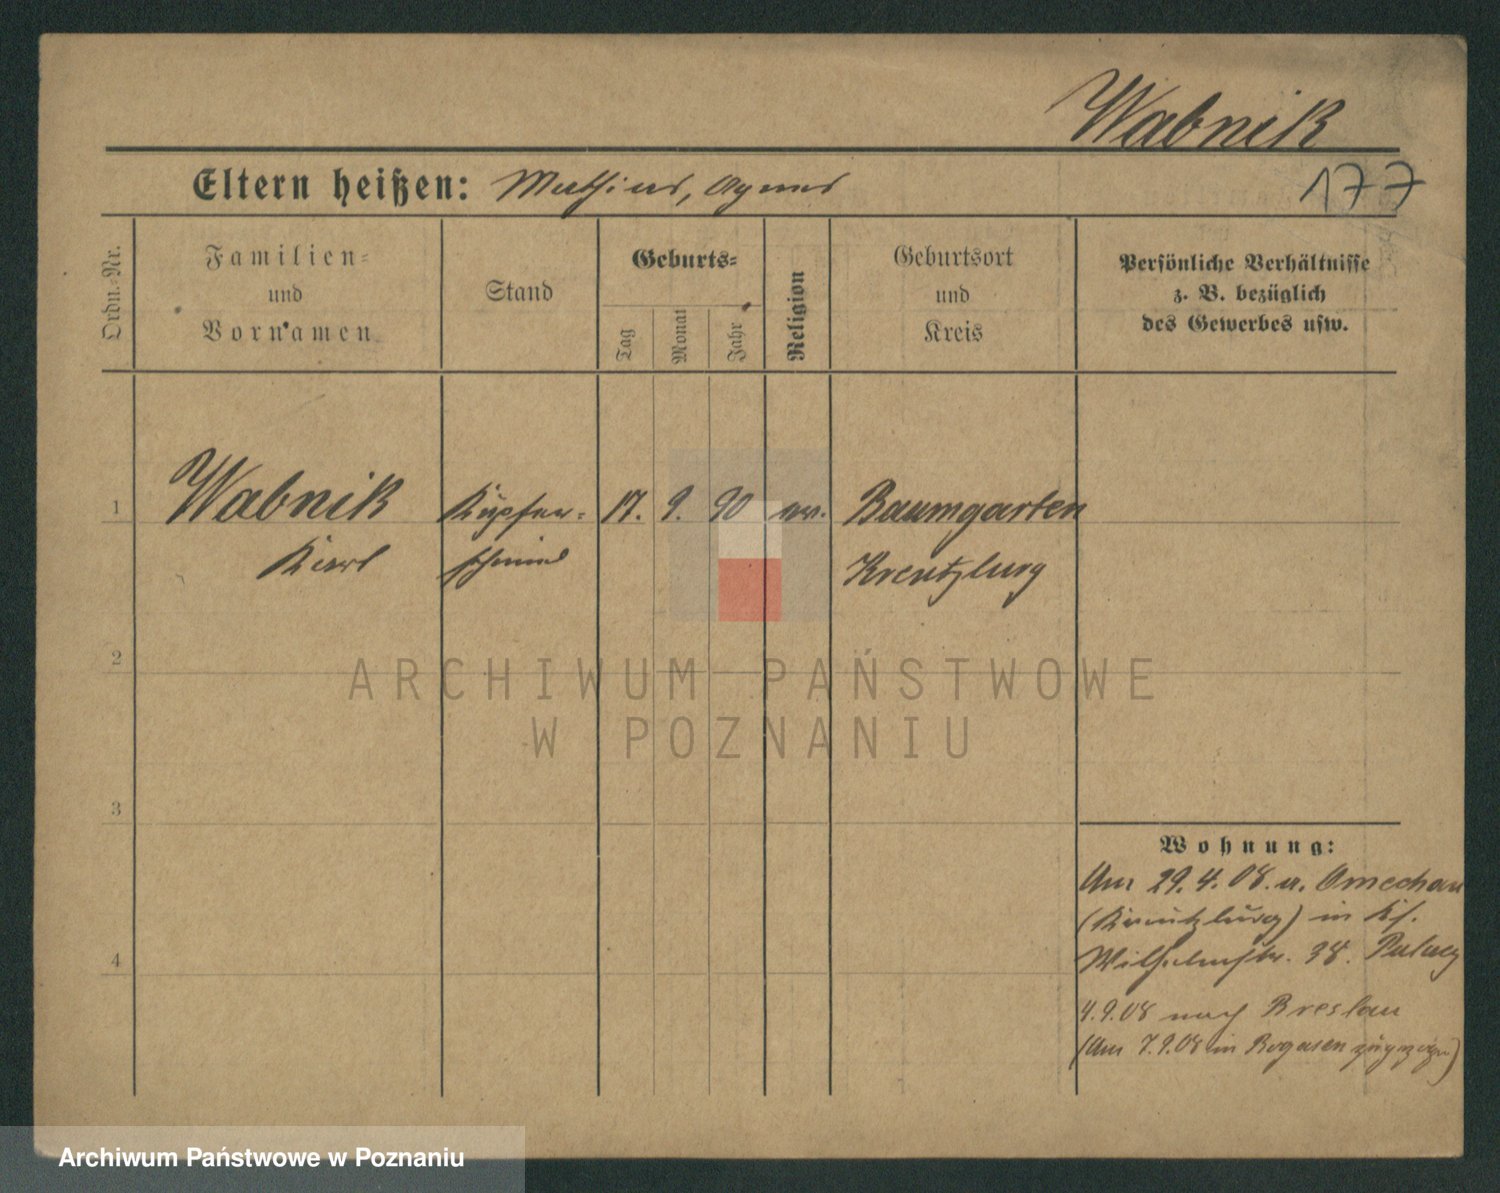 Wabnik
Eltern heißen: Mathias, Agnes
177
Ordn.-Nr.
Familien-
und
Vornamen
Stand
Geburts-
Tag
Monat
Jahr
Religion
Geburtsort
und
Kreis
Persönliche Verhältnisse
z. B. bezüglich
des Gewerbes usw.
1
Wabnik
Karl
Kupfer-
schmied
17. 9. 90
ev.
Baumgarten
Kreutzburg
2
3
4
Wohnung:
Am 29.4.08. a. Omechau
(Kreutzburg) in
Wilhelmstr. 38.
4.9.08 nach Breslau
(Am 7.9.08 in Rogasen zugezogen)
ARCHIWUM PAŃSTWOWE
W POZNANIU
Archiwum Państwowe w Poznaniu